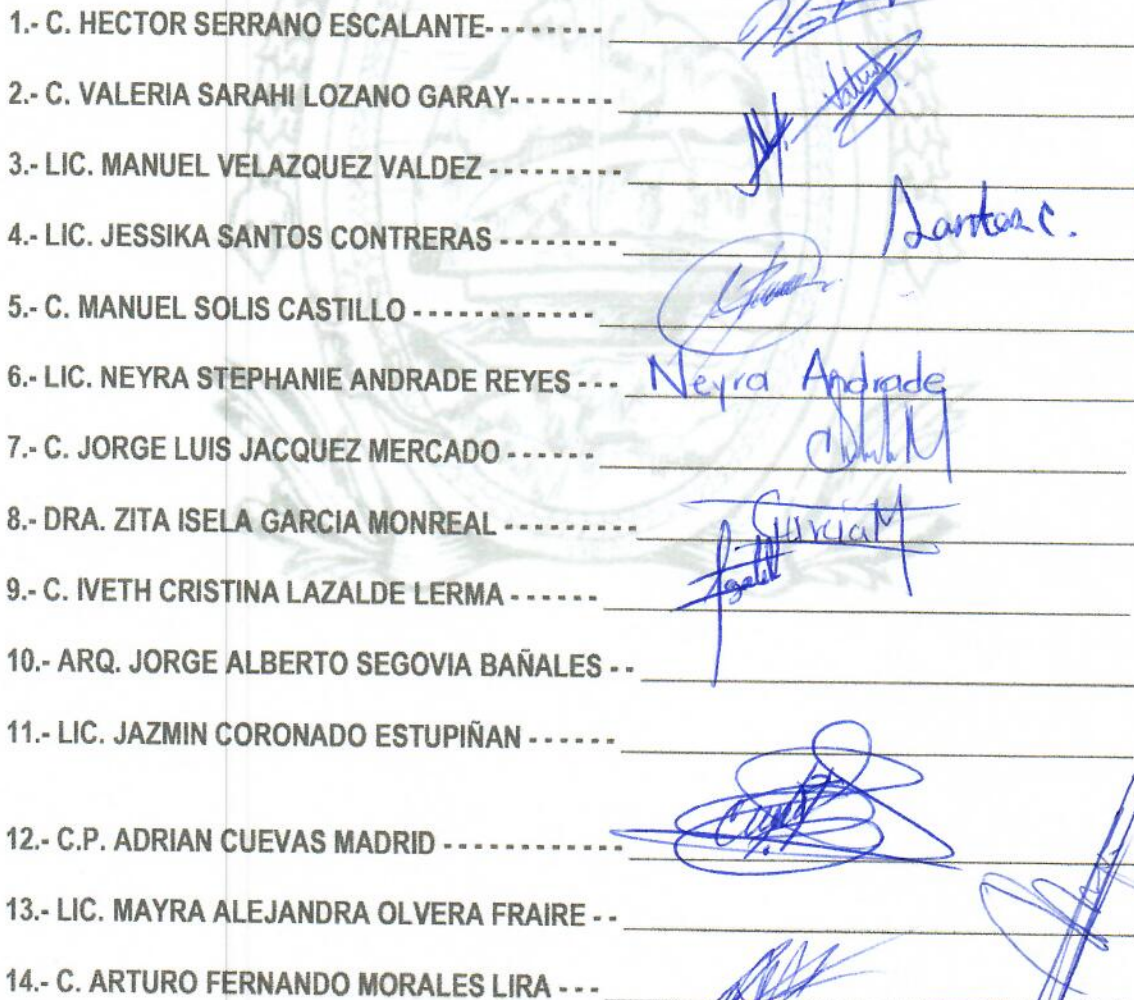 1.- C. HECTOR SERRANO ESCALANTE- - - - - - - -
2.- C. VALERIA SARAHI LOZANO GARAY- - - - - - -
3.- LIC. MANUEL VELAZQUEZ VALDEZ - - - - - - - - -
4.- LIC. JESSIKA SANTOS CONTRERAS - - - - - - - - Santos C.
5.- C. MANUEL SOLIS CASTILLO - - - - - - - - - - - -
6.- LIC. NEYRA STEPHANIE ANDRADE REYES - - - Neyra Andrade
7.- C. JORGE LUIS JACQUEZ MERCADO - - - - - -
8.- DRA. ZITA ISELA GARCIA MONREAL - - - - - - - - - García M
9.- C. IVETH CRISTINA LAZALDE LERMA - - - - - -
10.- ARQ. JORGE ALBERTO SEGOVIA BAÑALES - -
11.- LIC. JAZMIN CORONADO ESTUPIÑAN - - - - - -
12.- C.P. ADRIAN CUEVAS MADRID - - - - - - - - - - - -
13.- LIC. MAYRA ALEJANDRA OLVERA FRAIRE - -
14.- C. ARTURO FERNANDO MORALES LIRA - - -